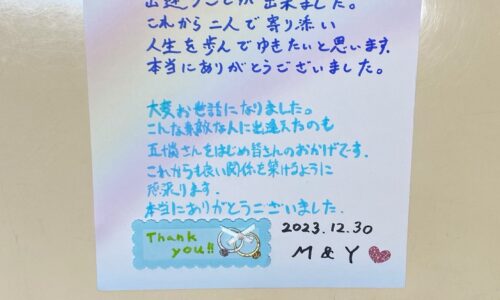 出逢うことが出来ました。
これから二人で寄り添い
人生を歩んでゆきたいと思います。
本当にありがとうございました。
大変お世話になりました。
こんな素敵な人に出逢えたのも
五十嵐さんをはじめ皆さんのおかげです。
これからも良い関係を築けるように
頑張ります。
本当にありがとうございました。
Thank you!!
2023.12.30
M & Y